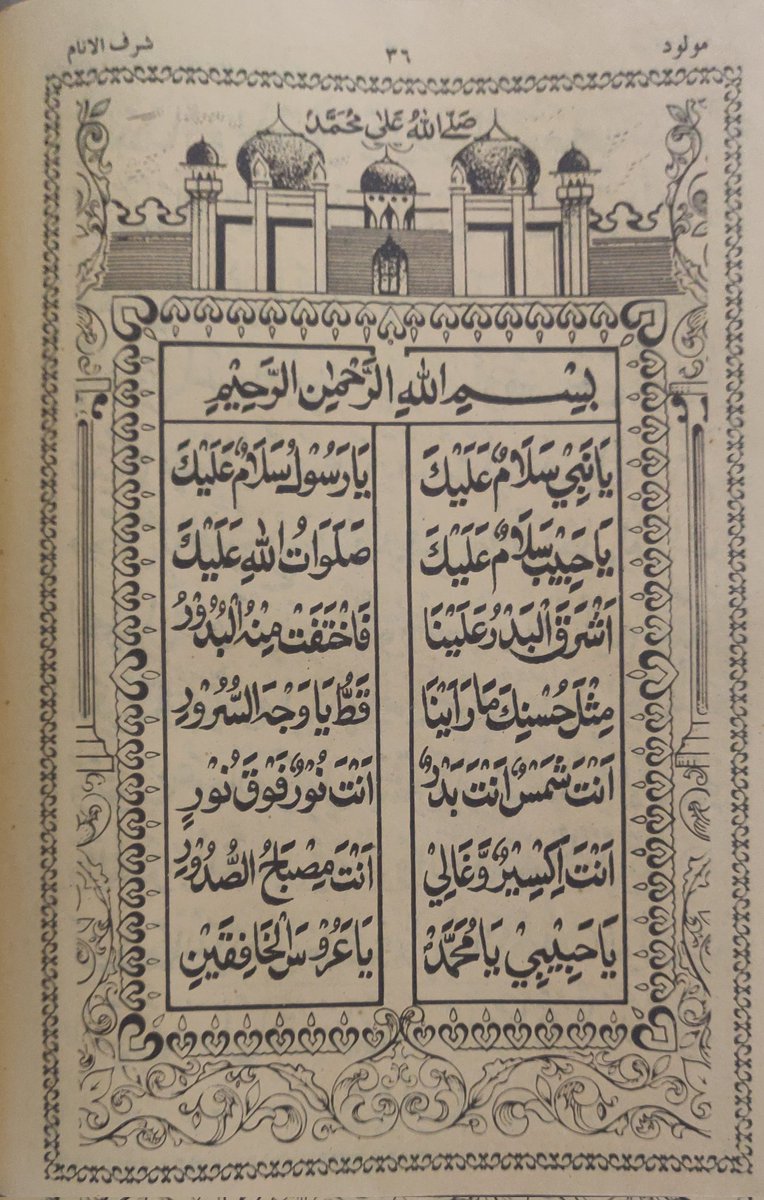 مولود ٣٦ شرف الانام
صَلَّى اللهُ عَلٰى مُحَمَّدْ
بِسْمِ اللهِ الرَّحْمٰنِ الرَّحِيْمِ
يَا نَبِيْ سَلَامٌ عَلَيْكَ يَا رَسُوْلُ سَلَامٌ عَلَيْكَ
يَا حَبِيْبُ سَلَامٌ عَلَيْكَ صَلَوَاتُ اللهِ عَلَيْكَ
اَشْرَقَ الْبَدْرُ عَلَيْنَا فَاخْتَفَتْ مِنْهُ الْبُدُوْرُ
مِثْلَ حُسْنِكَ مَا رَاَيْنَا قَطُّ يَا وَجْهَ السُّرُوْرِ
اَنْتَ شَمْسٌ اَنْتَ بَدْرٌ اَنْتَ نُوْرٌ فَوْقَ نُوْرٍ
اَنْتَ اِكْسِيْرٌ وَّغَالِيْ اَنْتَ مِصْبَاحُ الصُّدُوْرِ
يَا حَبِيْبِيْ يَا مُحَمَّدْ يَا عَرُوْسَ الْخَافِقَيْنِ